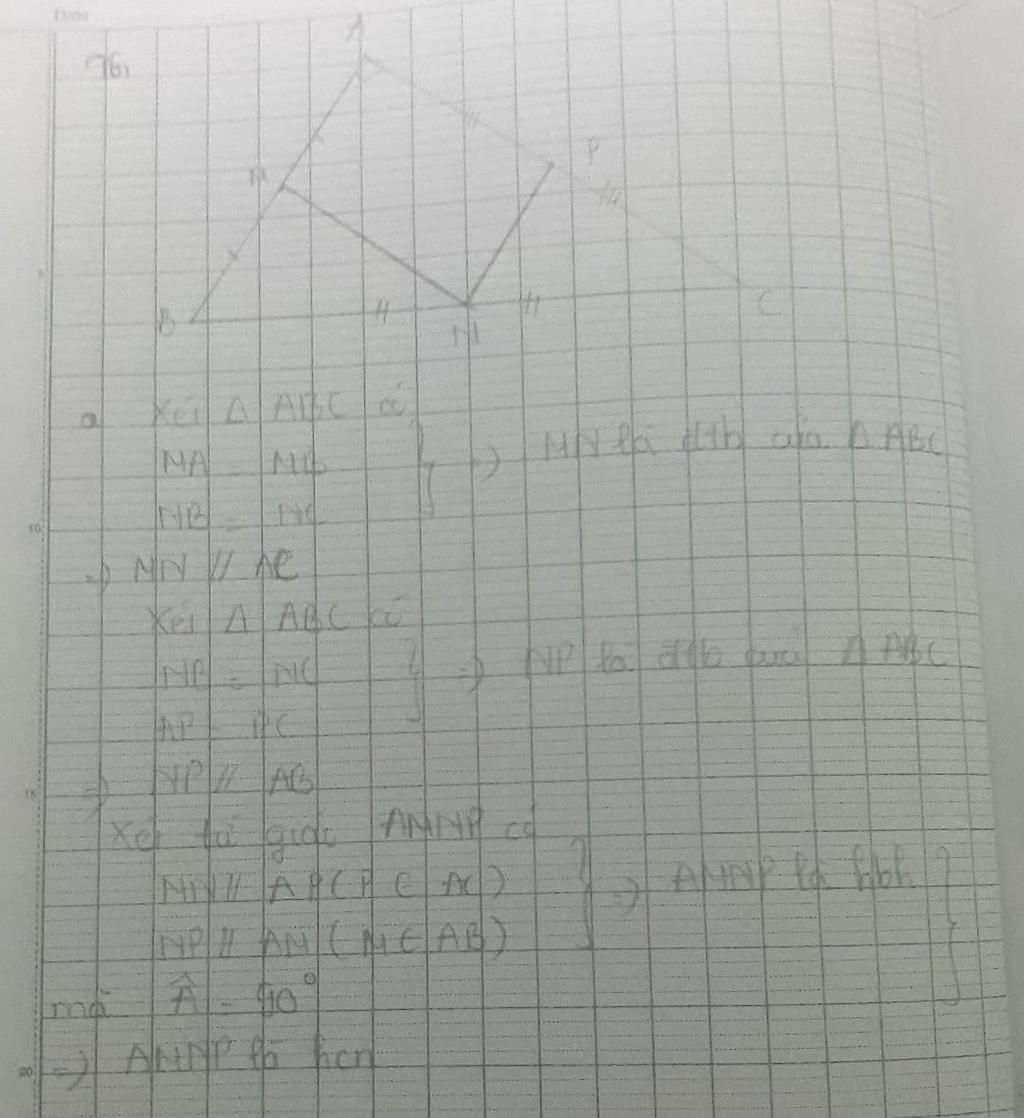 76,
A
M
P
B
N
C
a Xét Δ ABC có
MA = MB
NB = NC
=> MN là đtb của Δ ABC
=> MN // AC
Xét Δ ABC có
NB = NC
AP = PC
=> NP là đtb của Δ ABC
=> NP // AB
Xét tứ giác AMNP có
MN // AP (P ∈ AC)
NP // AM (M ∈ AB)
=> AMNP là hbh
mà Â = 90°
=> AMNP là hcn
5
10
15
20